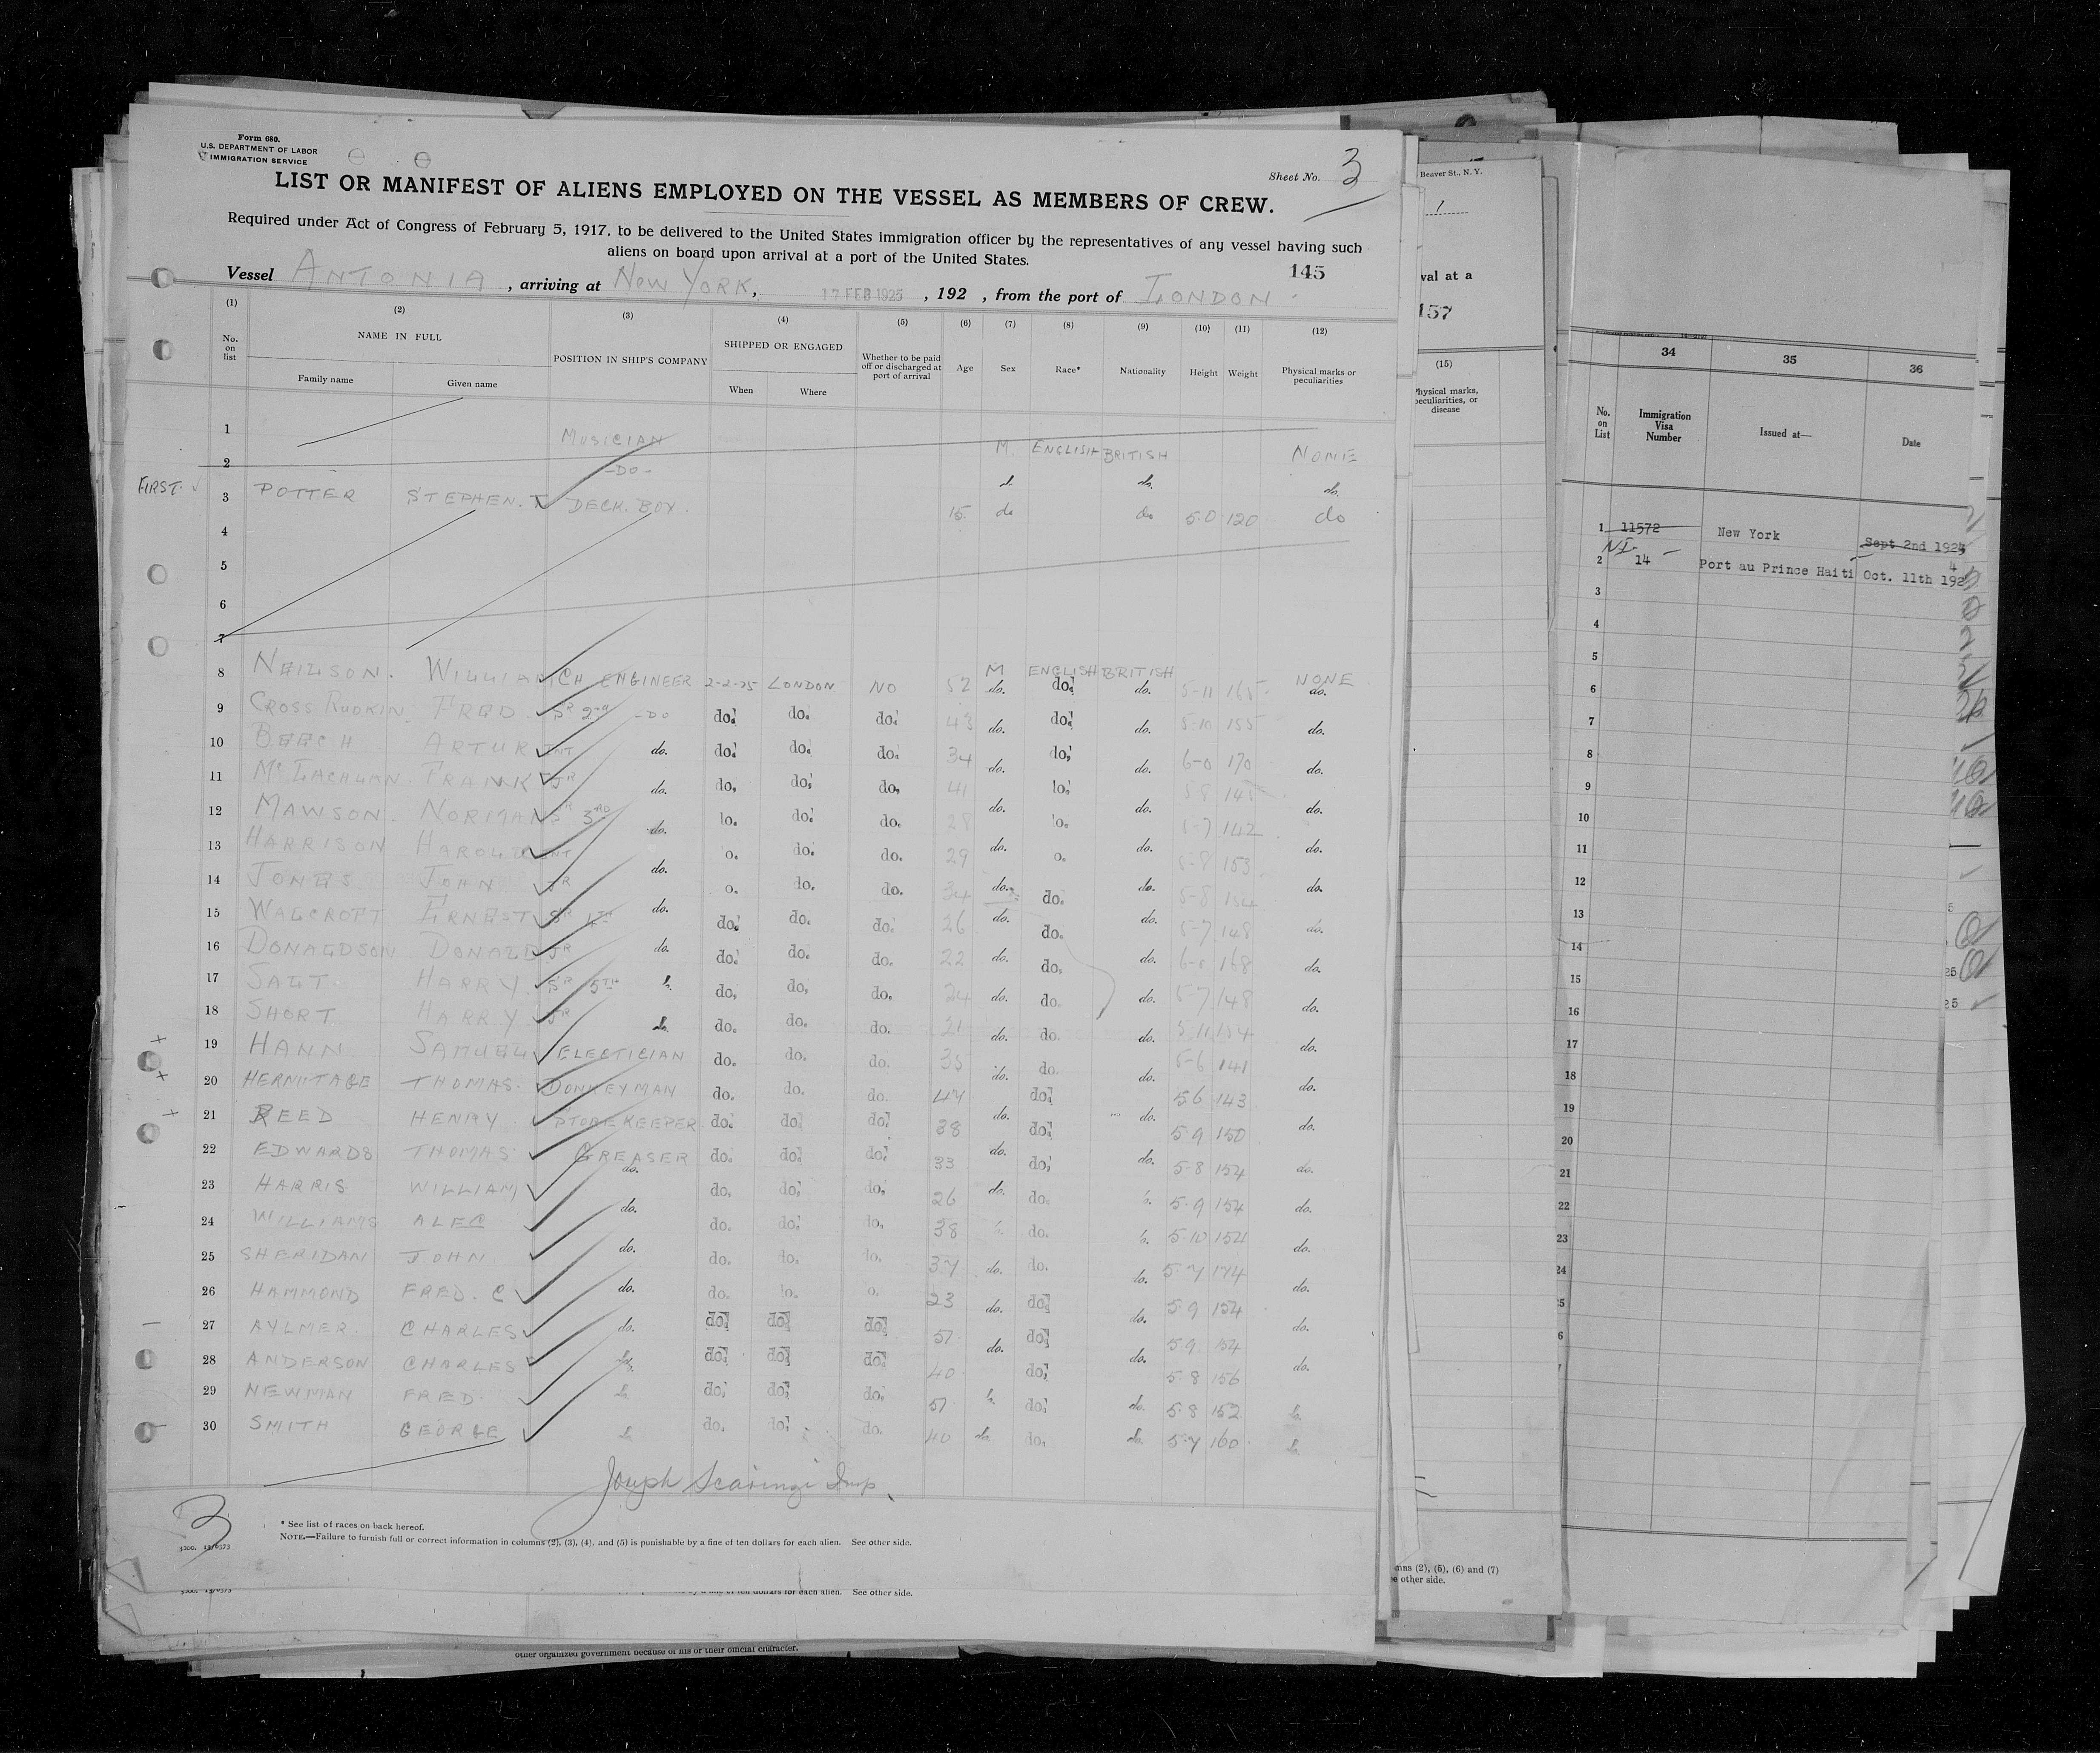 Form 680.
U.S. DEPARTMENT OF LABOR
IMMIGRATION SERVICE
Sheet No. 3
LIST OR MANIFEST OF ALIENS EMPLOYED ON THE VESSEL AS MEMBERS OF CREW.
Required under Act of Congress of February 5, 1917, to be delivered to the United States immigration officer by the representatives of any vessel having such
aliens on board upon arrival at a port of the United States.
145
Vessel ANTONIA, arriving at NEW YORK, 17 FEB 1925, 192 , from the port of LONDON.
(1) (2) (3) (4) (5) (6) (7) (8) (9) (10) (11) (12)
No. on list NAME IN FULL POSITION IN SHIP'S COMPANY SHIPPED OR ENGAGED Whether to be paid off or discharged at port of arrival Age Sex Race* Nationality Height Weight Physical marks or peculiarities
Family name Given name When Where
1 MUSICIAN
2 -DO- M. ENGLISH BRITISH NONE
FIRST. 3 POTTER STEPHEN. T DECK. BOY. 15 do do 5.0 120 do
4
5
6
7
8 NEILSON. WILLIAM CH ENGINEER 2-2-25 LONDON NO 52 M ENGLISH BRITISH 5-11 165 NONE
9 CROSS RUDKIN FRED. SR 2nd -DO do. do. do. 43 do. do. do. 5-10 155 do.
10 BEECH ARTUR INT do. do. do. do. 34 do. do. do. 6-0 170 do.
11 McLACHLAN. FRANK JR do. do. do. do. 41 do. do. do. 5 8 145 do.
12 MAWSON. NORMAN SR 3RD do. do. do. do. 28 do. do. do. 5-7 142 do.
13 HARRISON HAROLD INT do. do. do. 29 do. do. 5-8 153 do.
14 JONES JOHN JR do. do. do. 34 do. do. do. 5-8 154 do.
15 WALCROFT ERNEST SR 4TH do. do. do. do. 26 do. do. do. 5-7 148 do.
16 DONALDSON DONALD JR do. do. do. do. 22 do. do. do. 6-0 168 do.
17 SALT HARRY. SR 5TH do. do. do. 24 do. do. do. 5-7 148 do.
18 SHORT HARRY JR do. do. do. do. 21 do. do. 5-11 154 do.
19 HANN. SAMUEL ELECTICIAN do. do. do. 35 do. do. do. 5-6 141 do.
20 HERMITAGE THOMAS. DONKEYMAN do. do. do. 47 do. do. 5 6 143 do.
21 REED HENRY STOREKEEPER do. do. do. 38 do. do. do. 5 9 150 do.
22 EDWARDS THOMAS GREASER do. do. do. 33 do. do. do. 5-8 154 do.
23 HARRIS WILLIAM do. do. do. do. 26 do. do. 5.9 154 do.
24 WILLIAMS ALEC do. do. do. do. 38 do. 5-10 154 do.
25 SHERIDAN JOHN do. do. do. do. 37 do. do. do. 5-7 174 do.
26 HAMMOND FRED. C do. do. do. 23 do. do. do. 5 9 154 do.
27 AYLMER CHARLES do. do. do. do. 51 do. do. do. 5 9 154 do.
28 ANDERSON CHARLES do. do. do. 40 do. 5 8 156
29 NEWMAN FRED. do. do. do. 51 do. do. 5.8 152
30 SMITH GEORGE do. do. do. 40 do. do. do. 5-7 160
Joseph Scaringi Insp.
3
* See list of races on back hereof.
NOTE.—Failure to furnish full or correct information in columns (2), (3), (4). and (5) is punishable by a fine of ten dollars for each alien. See other side.
ten dollars for each alien. See other side.
other organized government because of his or their official character.
Beaver St., N. Y.
1
val at a
157
(15)
Physical marks, peculiarities, or disease
mns (2), (5), (6) and (7)
e other side.
34 35 36
No. on List Immigration Visa Number Issued at— Date
1 11572 New York Sept 2nd 1924
NI-
2 14 Port au Prince Haiti Oct. 11th 1924
3
4
5
6
7
8
9
10
11
12
13
14
15
16
17
18
19
20
21
22
23
24